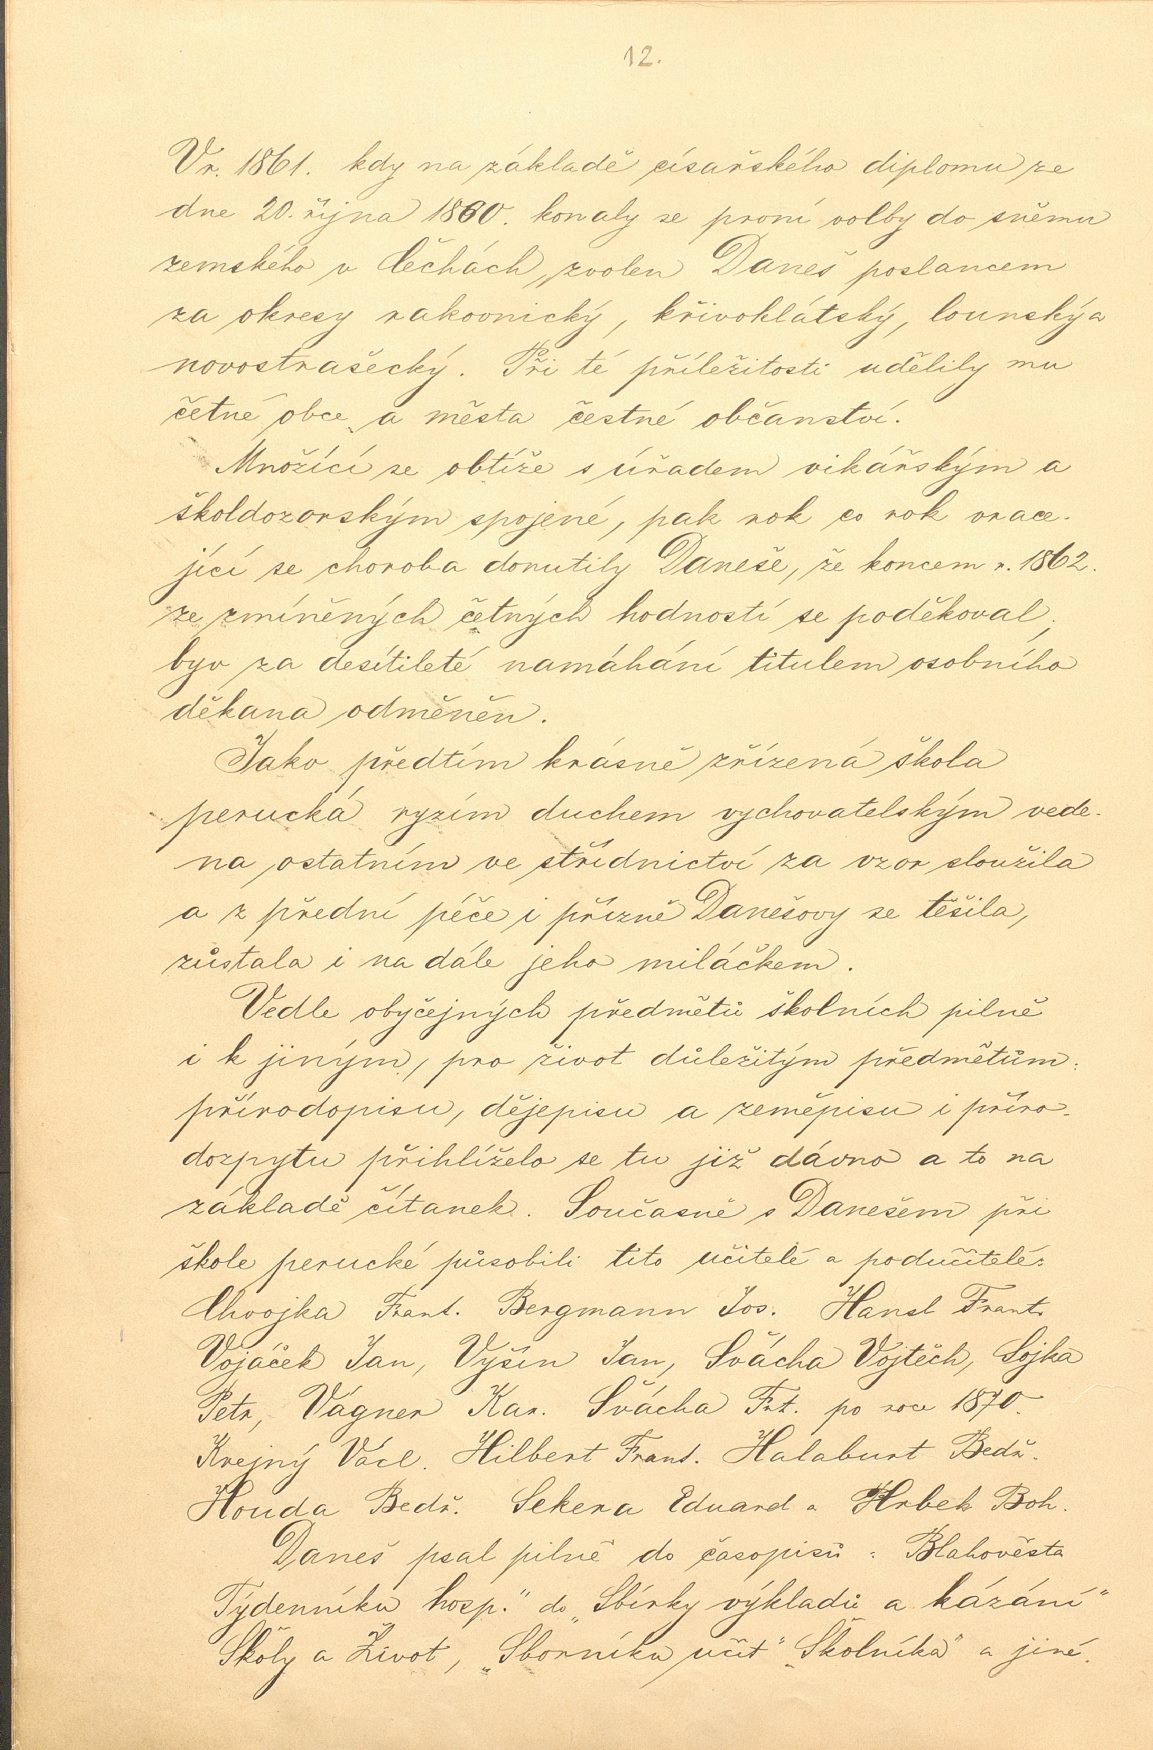 12.
V r. 1861. kdy na základě císařského diplomu ze
dne 20. října 1860. konaly se první volby do sněmu
zemského v Čechách, zvolen Daneš poslancem
za okresy rakovnický, křivoklátský, lounský a
novostrašecký. Při té příležitosti udělily mu
četné obce a města čestné občanství.
Množící se obtíže s úřadem vikářským a
školdozorským spojené, pak rok co rok vrace-
jící se choroba donutily Daneše, že koncem r. 1862.
ze zmíněných četných hodností se poděkoval,
byv za desítileté namáhání titulem osobního
děkana odměněn.
Jako předtím krásně zřízená škola
perucká ryzím duchem vychovatelským vede-
na ostatním ve střídnictví za vzor sloužila
a z přední péče i přízně Danešovy se těšila,
zůstala i na dále jeho miláčkem.
Vedle obyčejných předmětů školních pilně
i k jiným, pro život důležitým předmětům:
přírodopisu, dějepisu a zeměpisu i příro-
dozpytu přihlíželo se tu již dávno a to na
základě čítanek. Současně s Danešem při
škole perucké působili tito učitelé a podučitelé:
Chvojka Frant. Bergmann Jos. Hansl Frant.
Vojáček Jan, Vyšín Jan, Švácha Vojtěch, Sojka
Petr, Vágner Kar. Švácha Frt. po roce 1870.
Krejný Václ. Hilbert Frant. Halaburt Bedř.
Houda Bedř. Sekera Eduard a Hrbek Boh.
Daneš psal pilně do časopisů: Blahověsta
Týdenníku hosp." do „Sbírky výkladů a kázání"
Školy a Život, „Sborníku učit" „Školníka" a jiné.